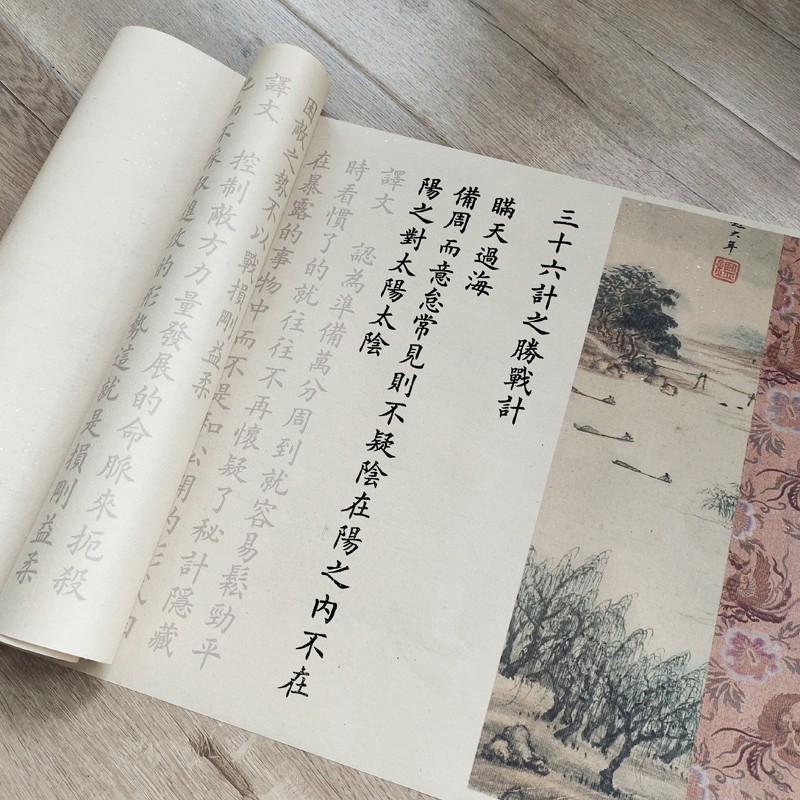 大年
三十六計之勝戰計
瞞天過海
備周而意怠常見則不疑陰在陽之內不在
陽之對太陽太陰
譯文 認為準備萬分周到就容易鬆勁平
時看慣了的就往往不再懷疑了秘計隱藏
在暴露的事物中而不是和公開的
困敵之勢不以戰損剛益柔
譯文 控制敵方力量發展的命脈來扼殺
而不採取進攻的形勢這就是損剛益柔